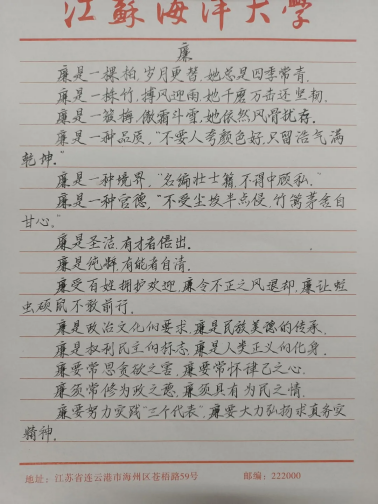 江蘇海洋大學
廉
廉是一棵柏，岁月更替，她总是四季常青。
廉是一株竹，搏风迎雨，她千磨万击还坚韧。
廉是一枝梅，傲霜斗雪，她依然风骨犹存。
廉是一种品质，“不要人夸颜色好，只留浩气满
乾坤。”
廉是一种境界，“名编壮士籍，不得中顾私。”
廉是一种官德，“不受尘埃半点侵，竹篱茅舍自
甘心。”
廉是圣洁，有才者倍出。
廉是纯粹，有能者自清。
廉受百姓拥护欢迎，廉令不正之风退却，廉让蛀
虫硕鼠不敢前行。
廉是政治文化的要求，廉是民族美德的传承。
廉是权利民主的标志，廉是人类正义的化身。
廉要常思贪欲之害，廉要常怀律己之心。
廉须常修为政之德，廉须具有为民之情。
廉要努力实践“三个代表”，廉要大力弘扬求真务实
精神。
地址：江苏省连云港市海州区苍梧路59号 邮编：222000